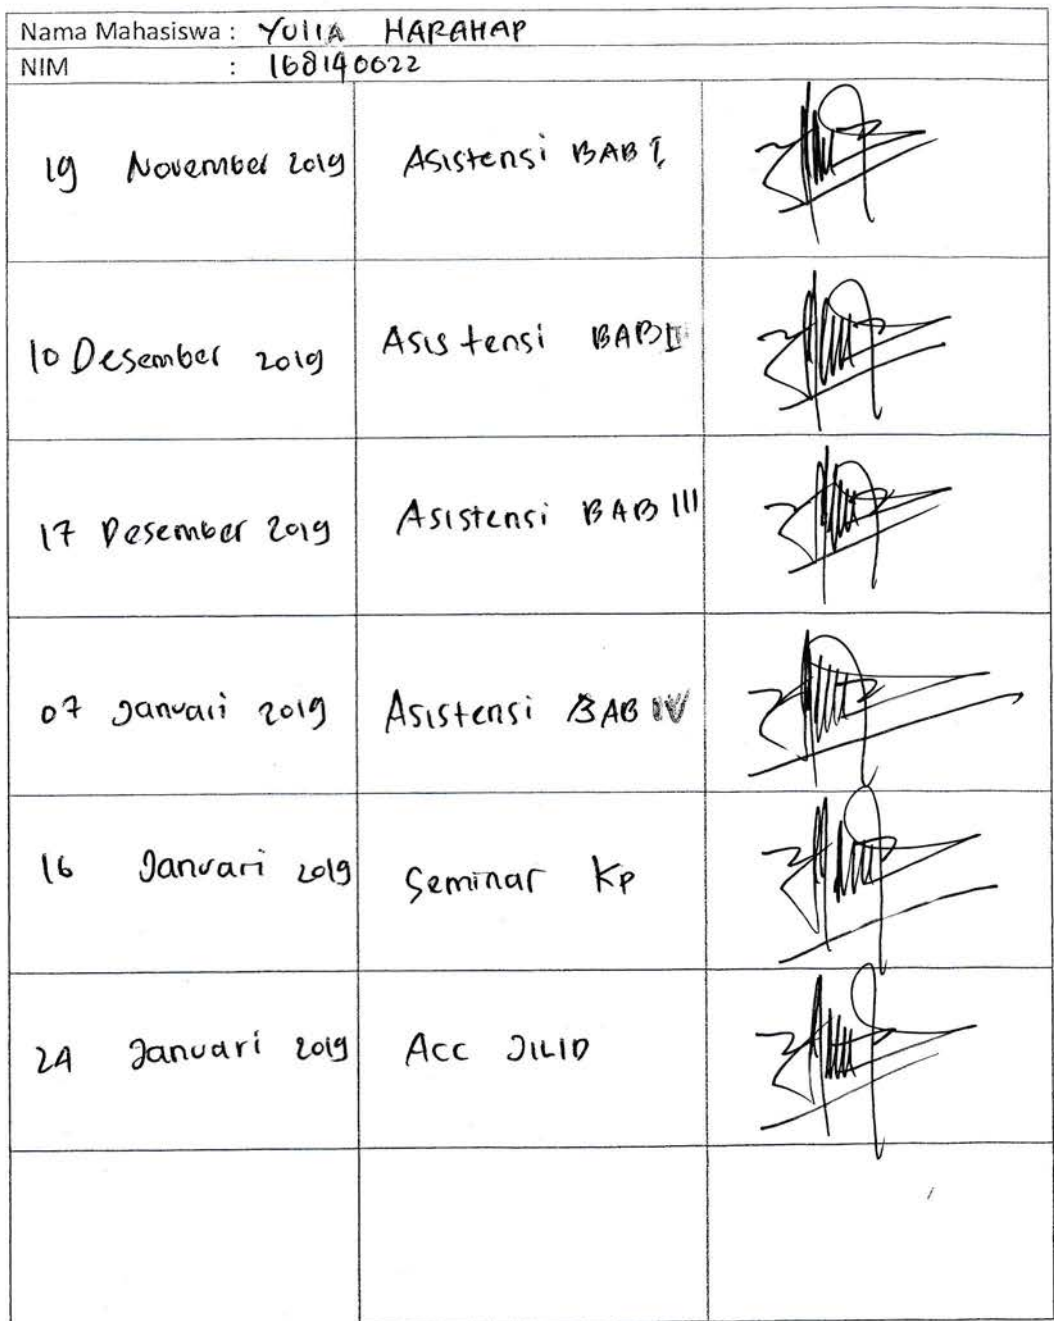 Nama Mahasiswa : YULIA HARAHAP
NIM : 168140022
19 November 2019 Asistensi BAB I
10 Desember 2019 Asistensi BAB II
17 Desember 2019 Asistensi BAB III
07 Januari 2019 Asistensi BAB IV
16 Januari 2019 Seminar KP
24 Januari 2019 Acc JILID